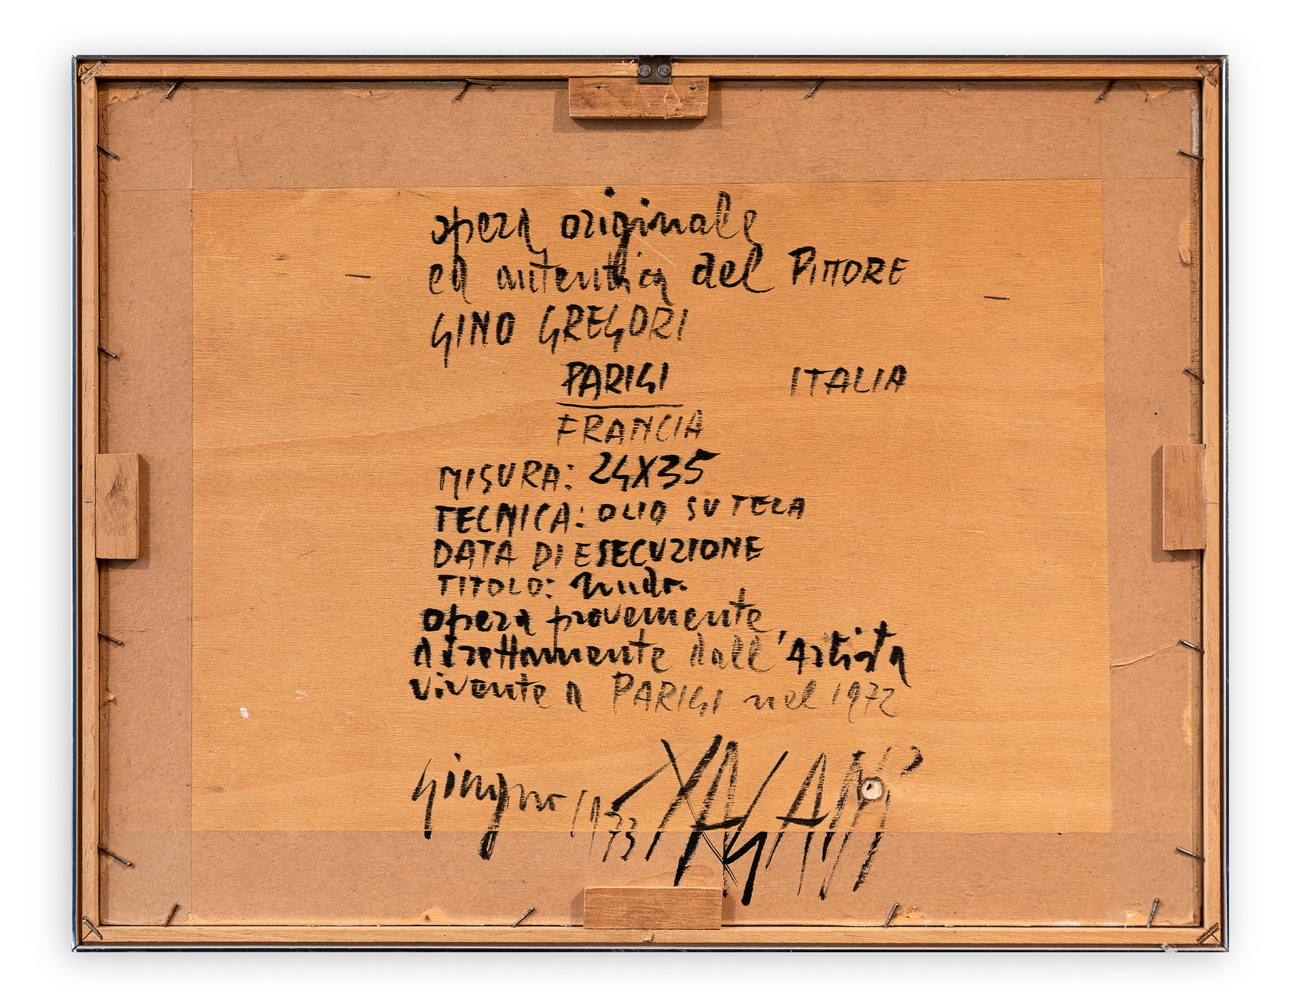 opera originale
ed autentica del PITTORE
GINO GREGORI
PARIGI ITALIA
FRANCIA
MISURA: 24X35
TECNICA: OLIO SU TELA
DATA DI ESECUZIONE
TITOLO: nudo.
opera provemente
direttamente dall'Artista
vivente a PARIGI nel 1972
Giugno 1973